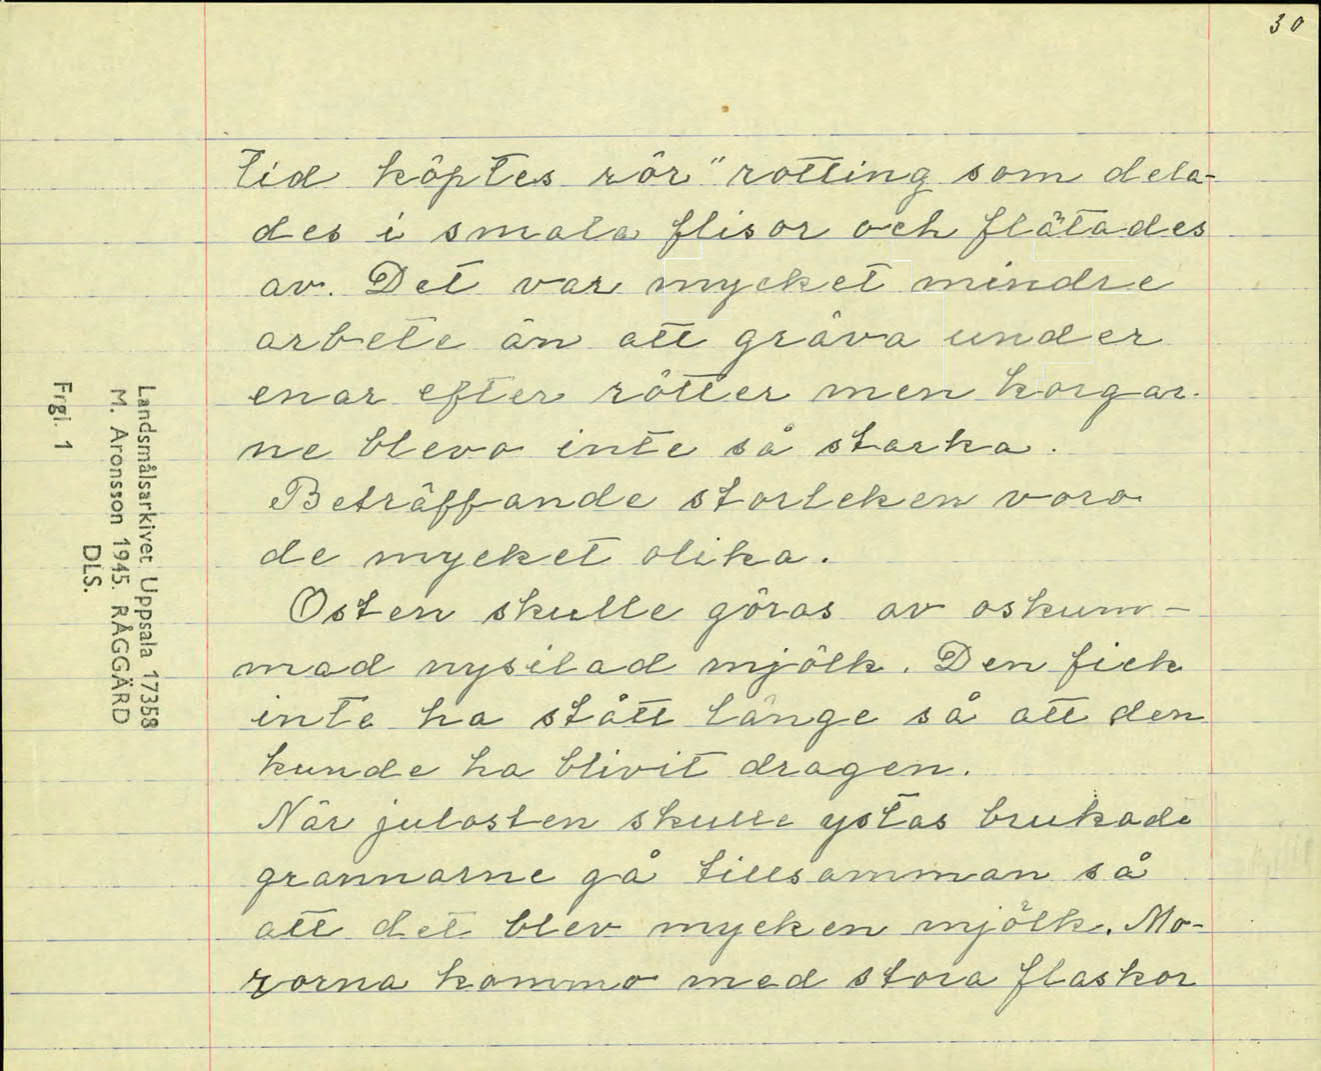 30
tid köptes rör "rotting som dela-
des i smala flisor och flätades
av. Det var mycket mindre
arbete än att gräva under
enar efter rötter men korgar-
ne blevo inte så starka.
Beträffande storleken voro
de mycket olika.
Osten skulle göras av oskum-
mad nysilad mjölk. Den fick
inte ha stått länge så att den
kunde ha blivit dragen.
När julosten skulle ystas brukade
grannarne gå tillsamman så
att det blev mycken mjölk. Mo-
rorna kommo med stora flaskor
Landsmålsarkivet Uppsala 17358
M. Aronsson 1945. RÅGGÄRD
DLS.
Frgl. 1